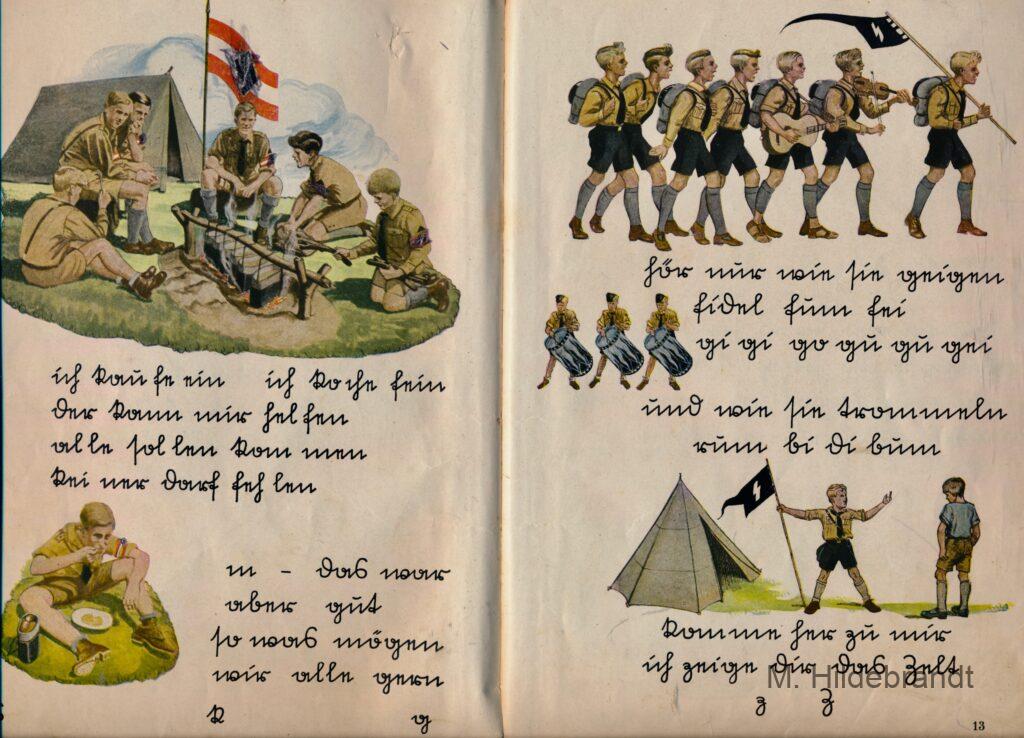 ich kau fe ein ich ko che fein
der kann mir hel fen
al le sol len kom men
kei ner darf feh len
m - das war
aber gut
so was mögen
wir alle gern
k g
hör nur wie sie geigen
fidel fum fei
gi gi go gu gu gei
und wie sie trommeln
rum bi di bum
komme her zu mir
ich zeige dir das Zelt
z Z
M. Hildebrandt
13